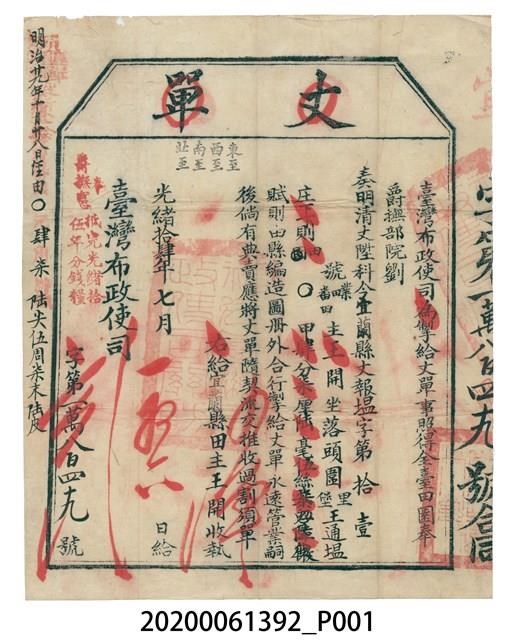 丈單
字第一萬八百四九號合同
臺灣布政使司為掣給丈單事照得全臺田園奉
爵撫部院劉
奏明清丈陞科今宜蘭縣丈報塭字第拾壹
號
主王開坐落頭圍里堡王通塭
庄下則田
○甲肆分柒厘陸毫伍絲
賦則由縣編造圖冊外合行掣給丈單永遠管業嗣
後倘有典賣應將丈單隨契流交推收過割須單
右給宜蘭縣田主王開收執
東至
西至
南至
北至
光緒拾肆年七月
日給
臺灣布政使司
字第一萬八百四九號
奉
爵撫憲
抵完光緒拾
伍年分錢糧
明治廿九年十月廿八日任由○肆柒陸
20200061392_P001